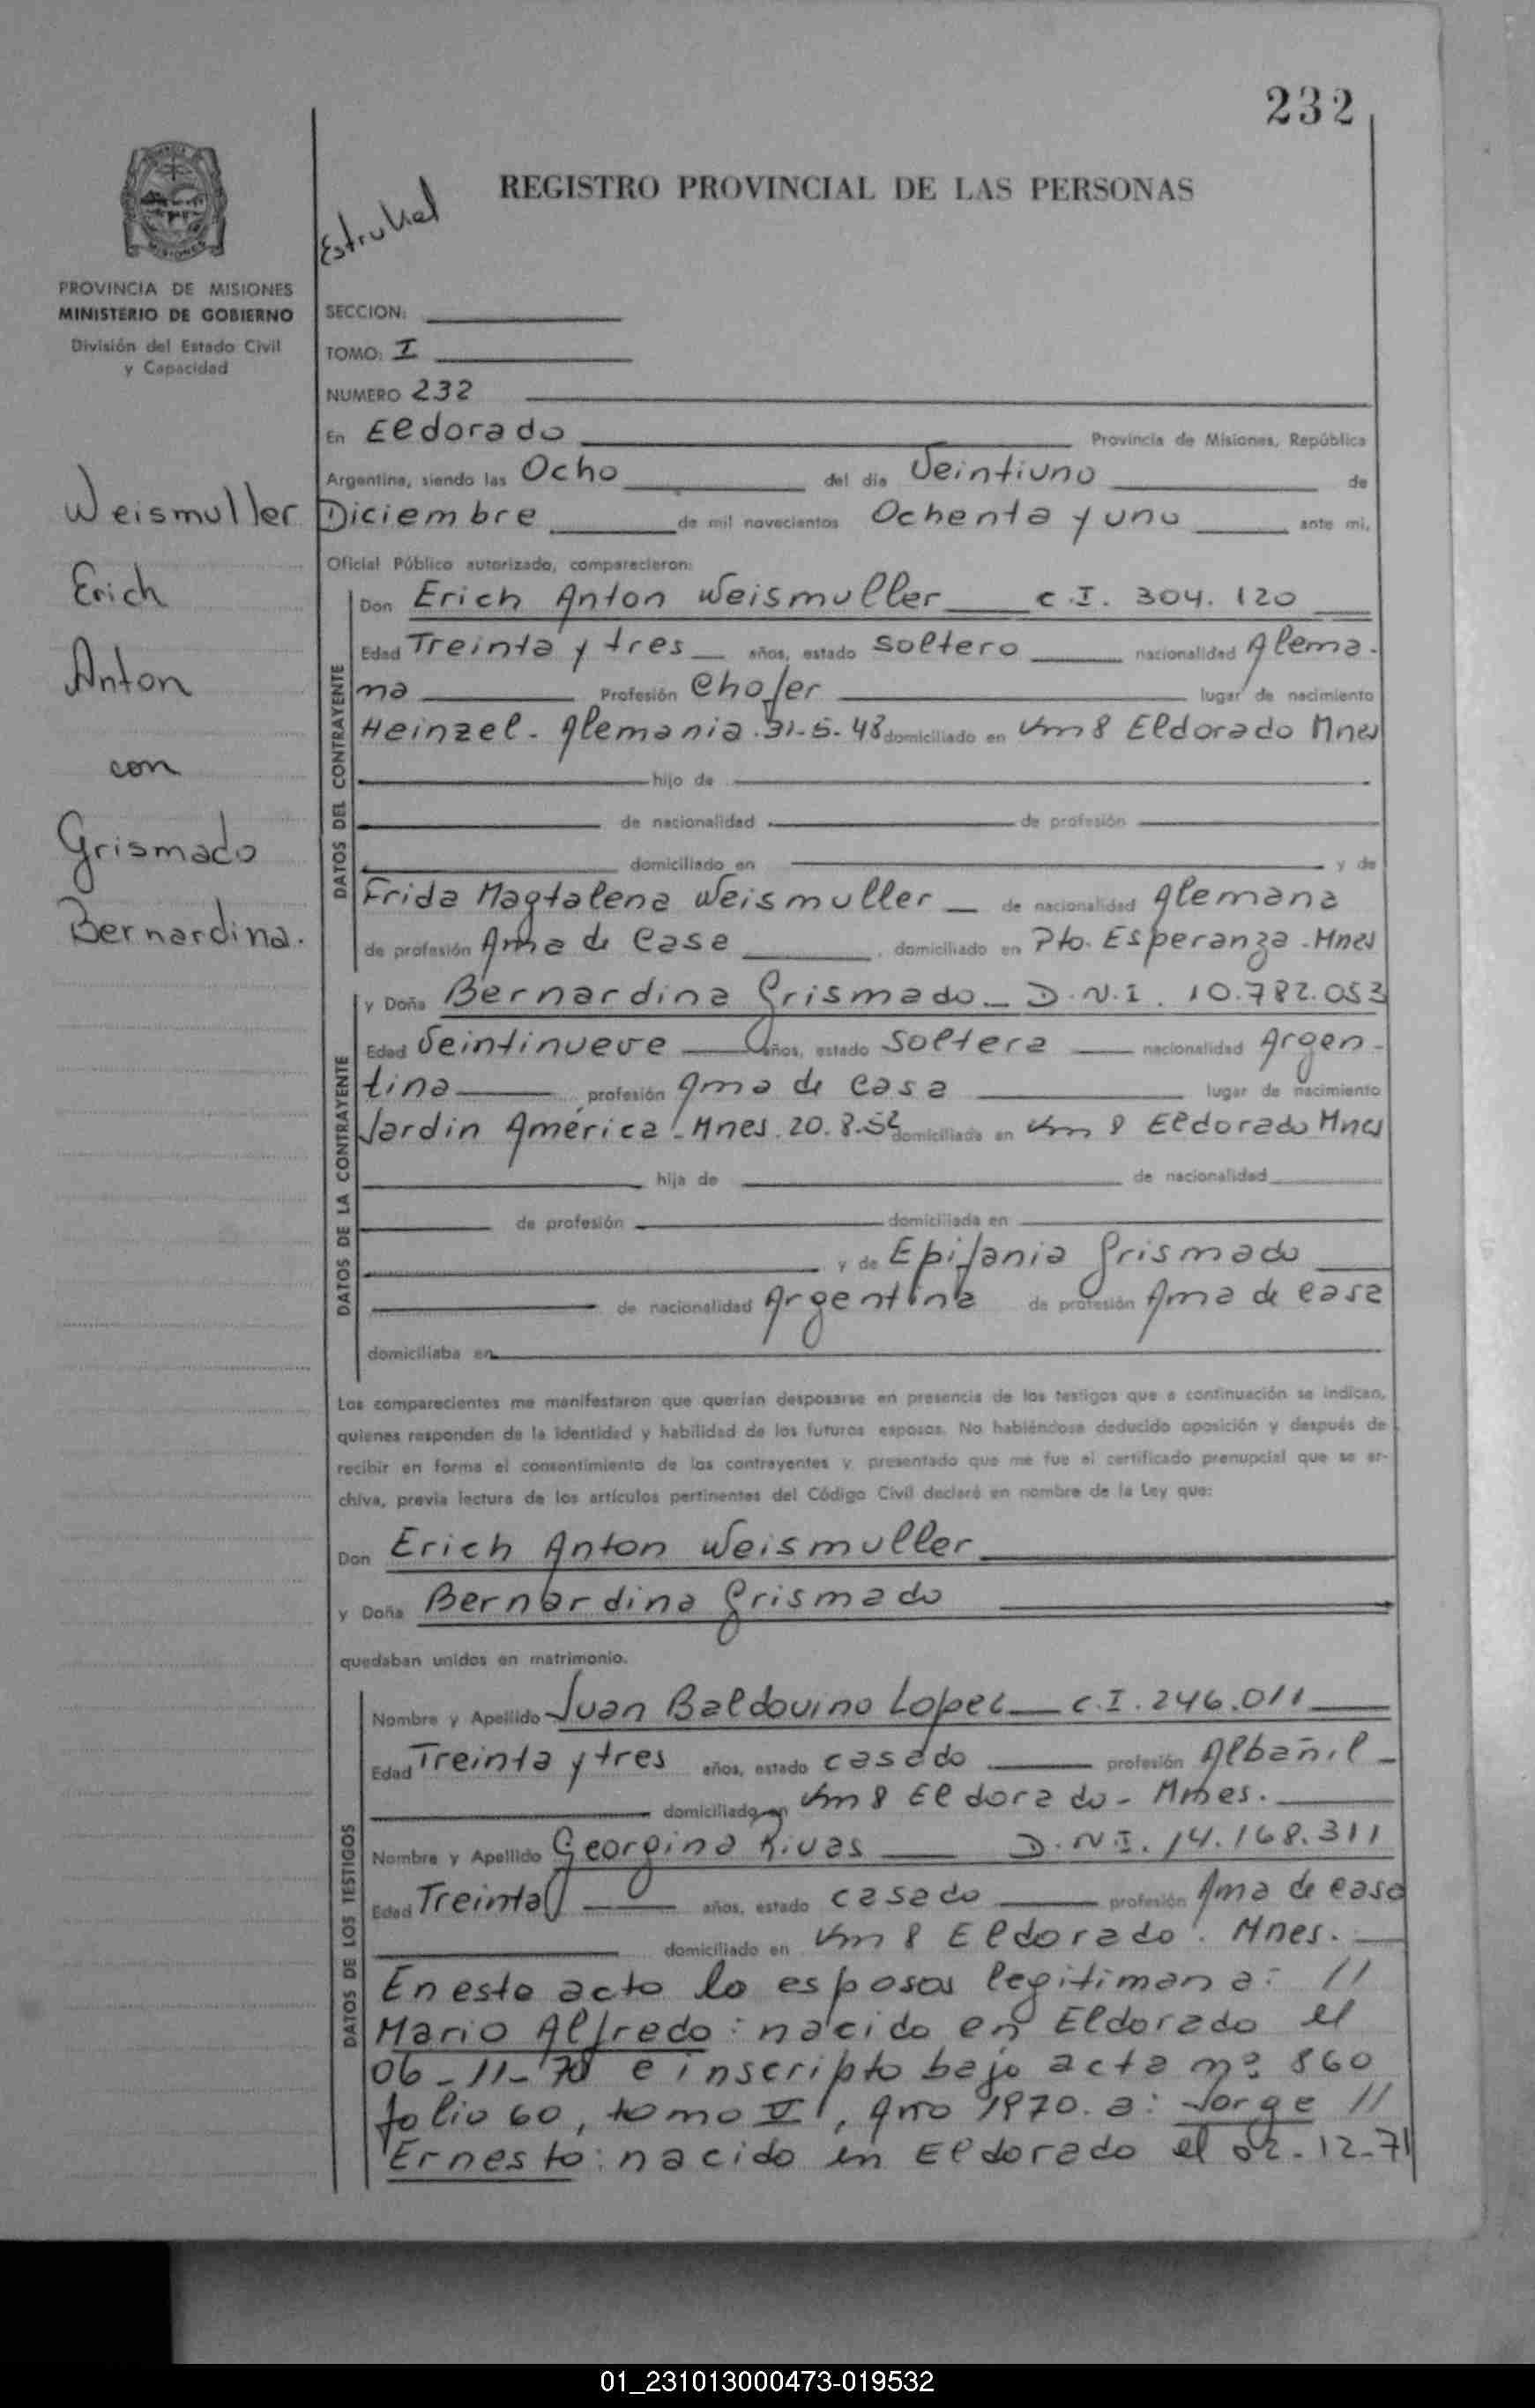 232
REGISTRO PROVINCIAL DE LAS PERSONAS
MISIONES
PROVINCIA DE MISIONES
MINISTERIO DE GOBIERNO
División del Estado Civil
y Capacidad
Weismuller
Erich
Anton
con
Grismado
Bernardina.
SECCION:
TOMO: I
NUMERO 232
En Eldorado Provincia de Misiones, República
Argentina, siendo las Ocho del día Veintiuno de
Diciembre de mil novecientos Ochenta y uno ante mi,
Oficial Público autorizado, comparecieron:
DATOS DEL CONTRAYENTE
Don Erich Anton Weismuller C.I. 304.120
Edad Treinta y tres años, estado soltero nacionalidad Alema-
na Profesión Chofer lugar de nacimiento
Heinzel - Alemania. 31-5-48 domiciliado en Km 8 Eldorado Mnes
hijo de
de nacionalidad de profesión
domiciliado en y de
Frida Magtalena Weismuller de nacionalidad Alemana
de profesión Ama de Casa domiciliado en Pto. Esperanza - Mnes
DATOS DE LA CONTRAYENTE
y Doña Bernardina Grismado - D.N.I. 10.782.053
Edad Veintinueve años, estado soltera nacionalidad Argen-
tina profesión Ama de casa lugar de nacimiento
Jardin América - Mnes. 20.8.52 domiciliada en Km 8 Eldorado Mnes
hija de de nacionalidad
de profesión domiciliada en
y de Epifania Grismado
de nacionalidad Argentina de profesión Ama de casa
domiciliaba en
Los comparecientes me manifestaron que querían desposarse en presencia de los testigos que a continuación se indican,
quienes responden de la identidad y habilidad de los futuros esposos. No habiéndose deducido oposición y después de
recibir en forma el consentimiento de los contrayentes y presentado que me fue el certificado prenupcial que se ar-
chiva, previa lectura de los artículos pertinentes del Código Civil declaré en nombre de la Ley que:
Don Erich Anton Weismuller
y Doña Bernardina Grismado
quedaban unidos en matrimonio.
DATOS DE LOS TESTIGOS
Nombre y Apellido Juan Baldovino Lopez C.I. 246.011
Edad Treinta y tres años, estado casado profesión Albañil -
domiciliado en Km 8 Eldorado - Mnes.
Nombre y Apellido Georgina Rivas D.N.I. 14.168.311
Edad Treinta años, estado casado profesión Ama de casa
domiciliado en Km 8 Eldorado. Mnes.
En este acto lo esposos legitiman a: //
Mario Alfredo: nacido en Eldorado el
06-11-70 e inscripto bajo acta nº 860
folio 60, tomo V, año 1970. a: Jorge //
Ernesto: nacido en Eldorado el 02-12-71
01_231013000473-019532